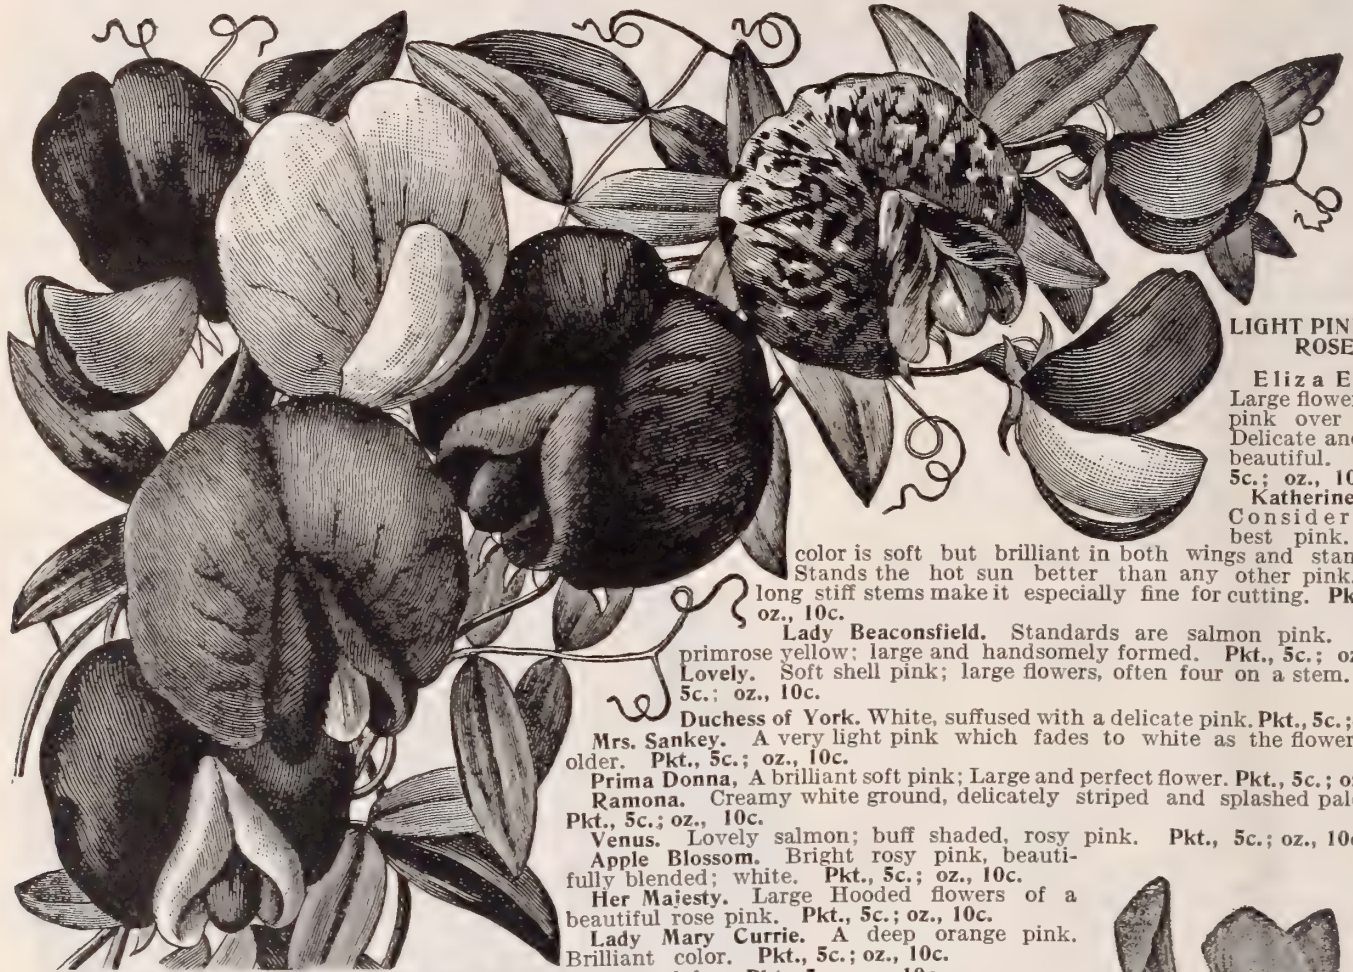 LIGHT PIN
ROSE
Eliza E
Large flower
pink over
Delicate and
beautiful.
5c.; oz., 10
Katherine
Consider
best pink.
color is soft but brilliant in both wings and stan
Stands the hot sun better than any other pink.
long stiff stems make it especially fine for cutting. Pk
oz., 10c.
Lady Beaconsfield. Standards are salmon pink.
primrose yellow; large and handsomely formed. Pkt., 5c.; oz
Lovely. Soft shell pink; large flowers, often four on a stem.
5c.; oz., 10c.
Duchess of York. White, suffused with a delicate pink. Pkt., 5c.;
Mrs. Sankey. A very light pink which fades to white as the flower
older. Pkt., 5c.; oz., 10c.
Prima Donna, A brilliant soft pink; Large and perfect flower. Pkt., 5c.; oz
Ramona. Creamy white ground, delicately striped and splashed pal
Pkt., 5c.; oz., 10c.
Venus. Lovely salmon; buff shaded, rosy pink. Pkt., 5c.; oz., 10c
Apple Blossom. Bright rosy pink, beauti-
fully blended; white. Pkt., 5c.; oz., 10c.
Her Majesty. Large Hooded flowers of a
beautiful rose pink. Pkt., 5c.; oz., 10c.
Lady Mary Currie. A deep orange pink.
Brilliant color. Pkt., 5c.; oz., 10c.